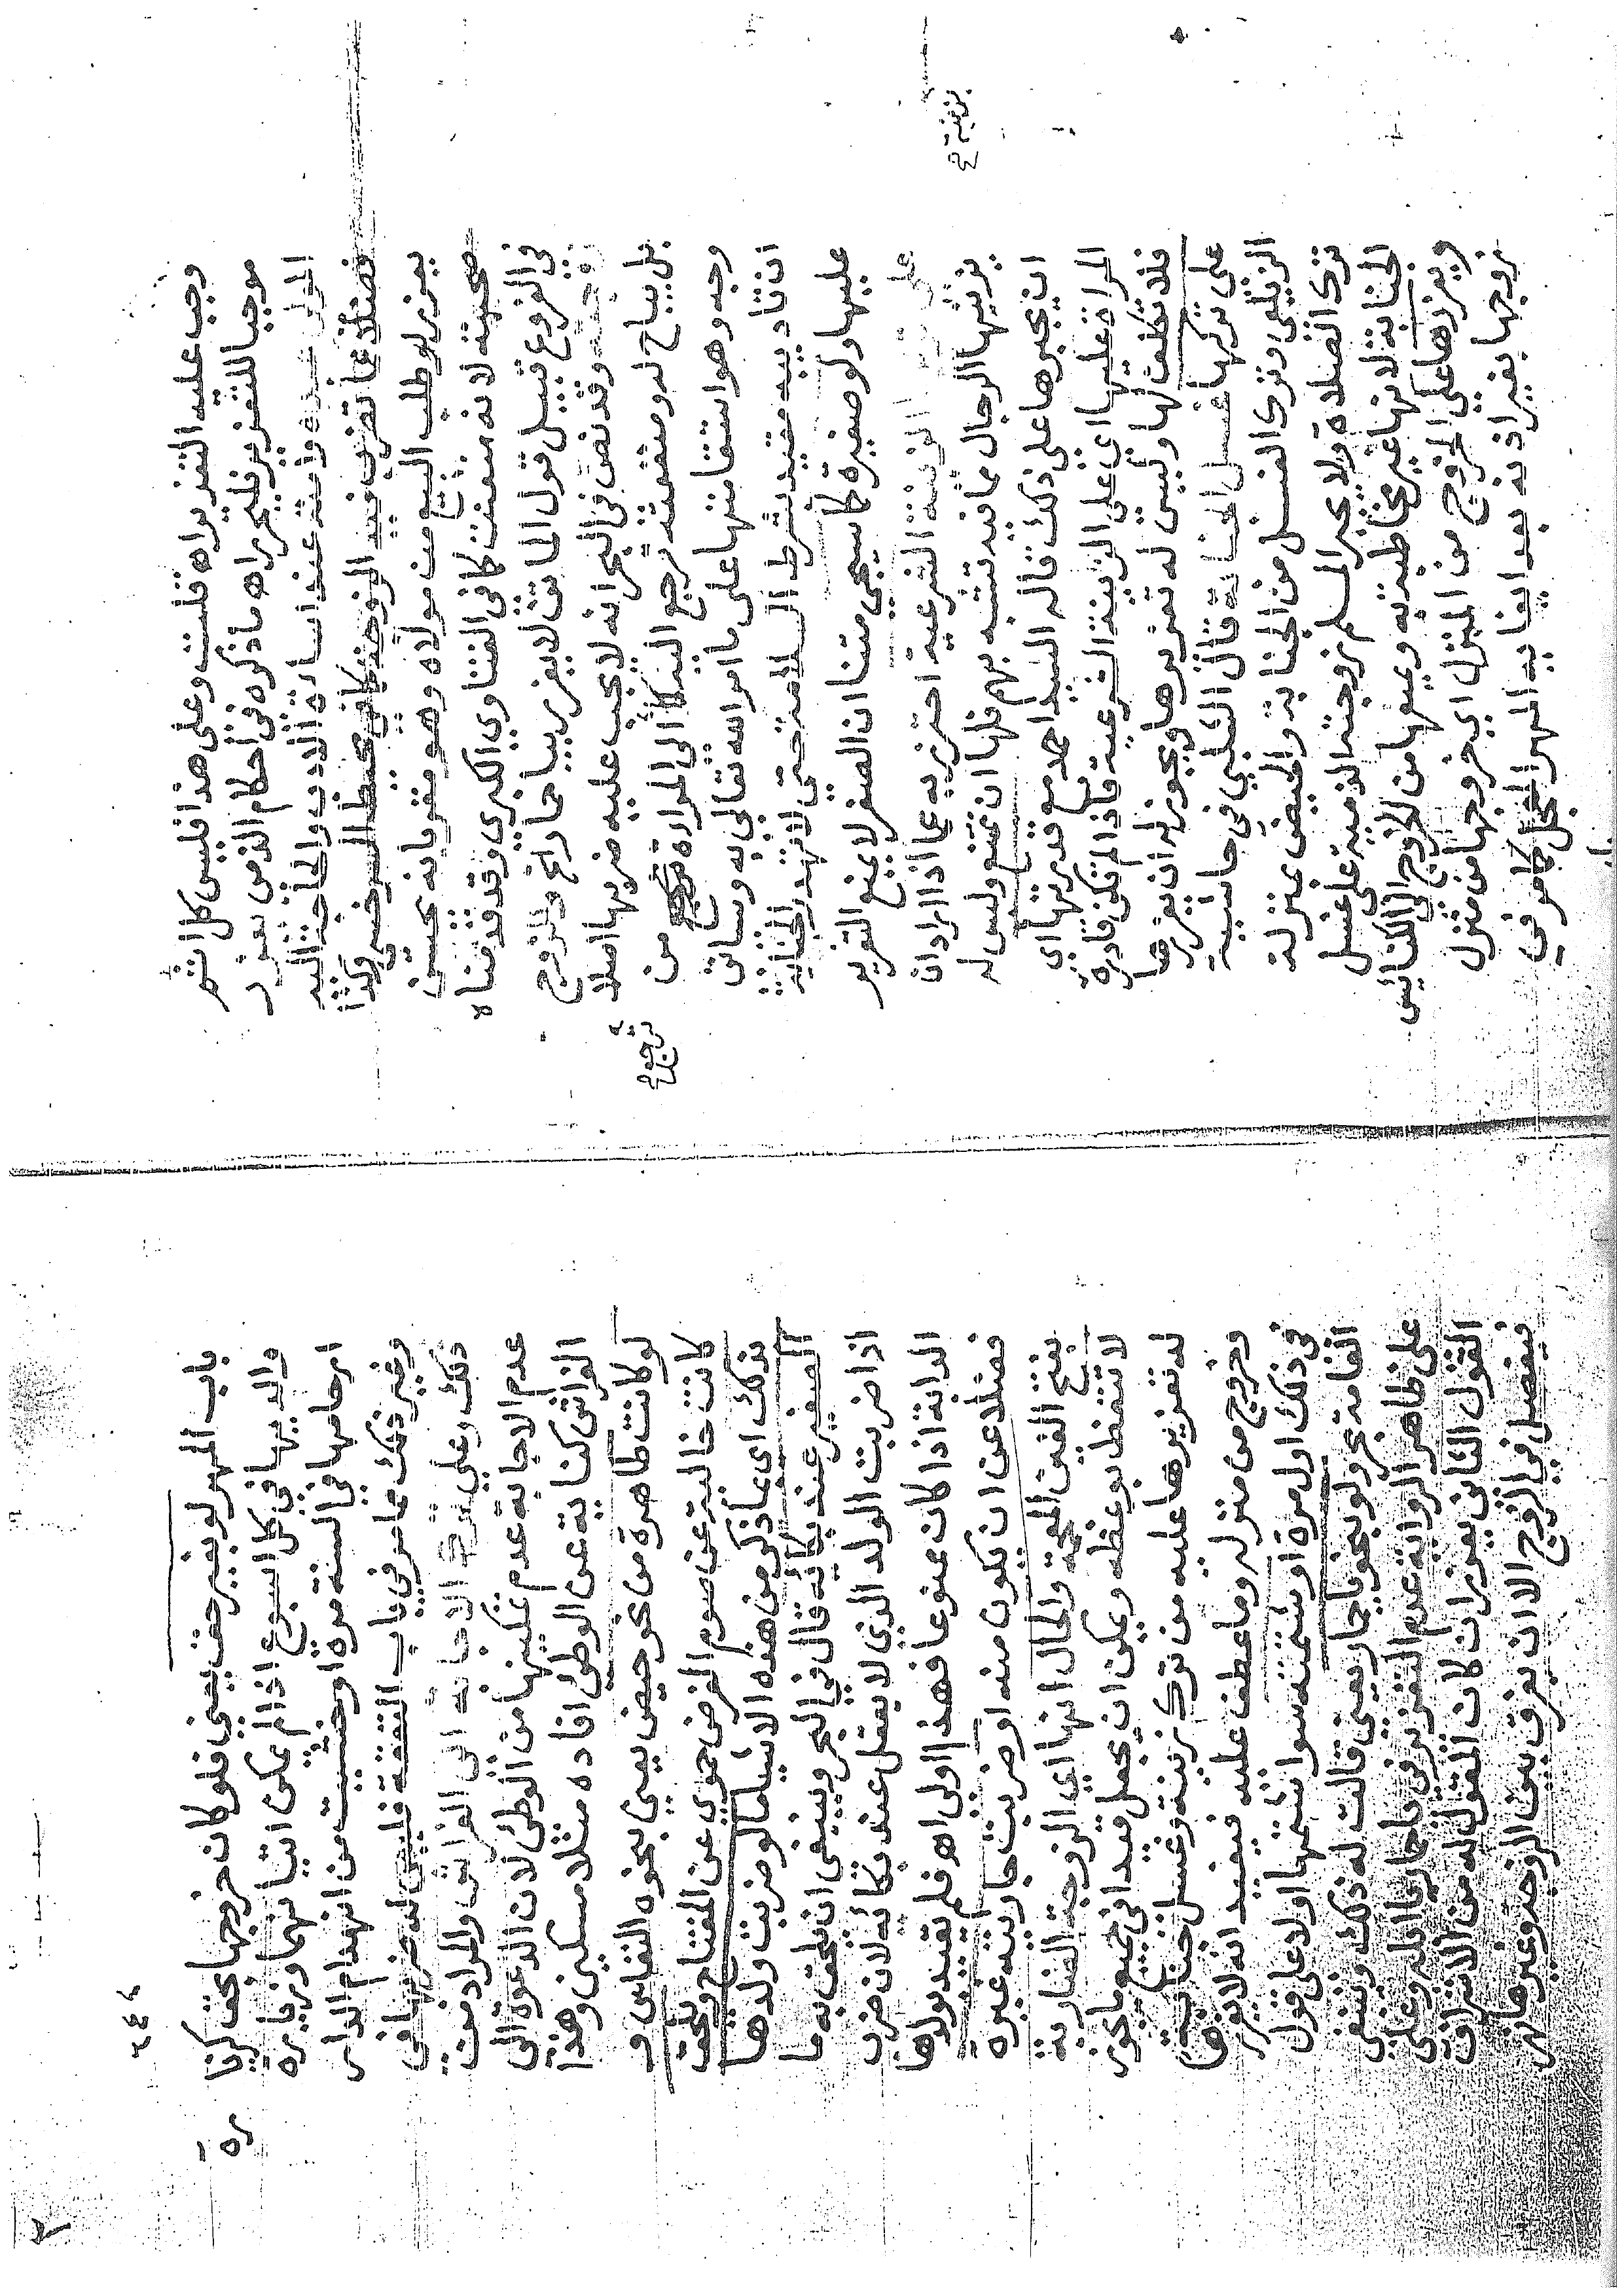 وجب عليه التعزير براه قلت وعلى هذا فليس كل اثم
موجبا للتعزير فليحرر اه ما ذكره في احكام الذمي
المولى عبده وامته عند اساءة الادب والحاجة اليه
فضلا عما تقرب فيه الزوجة كافي محيط السرخسي وكذا
يعزر لو طلب البيع من مولاه وهو مقر بانه يحسن
صحبته لانه متعنت كما في الفتاوى الكبرى وقد قدمناه
في الفروع قبيل قول الماتن لا يعزر بيا حمار اخ والزوج
زوجته وقد نص في البحر انه لا يجب عليه ضربها اصلا
بل يباح له ومنفعته ترجع اليه كما الى المراة من
ترجع
وجه وهو استقامتها على ما امر الله تعالى به وساق
ان تاديبه مقيد بشرط السلامة حتى لا تهدر الجناية
عليها ولو صغيرة كما سيجي متنا ان الصغر لا يمنع التعزير
على الزينة الشرعية احترز به عما اذا اراد ان
بزينة
يزينها الرجال مما فيه تشبه بهم فلها ان تمتنع وليس له
ان يجبرها على ذلك قاله السيد احمد مع قدرتها اي
المراة عليها اي على الزينة الشرعية فاذا لم تكن قادرة
فلا تكلف لها وليس له تعزيرها ويجوز له ان يعزرها
على تركها غسل الجنابة قال الشلبي في حاشية
الزيلعي وترك الغسل من الجنابة والحيض بمنزلة
ترك الصلاة ولا يجبر المسلم زوجته الذمية على غسل
الجنابة لانها غير مخاطبة به ويمنعها من الخروج الى الكنائس
ويعزرها على الخروج من المنزل اي خروجها من منزل
زوجها بغير اذنه بعد ايفائه المهر المعجل كما مر في
٢٤٤
باب المهر لو بغير حق يعني فلو كان خروجها بحق كزيا
رة
والديها في كل اسبوع اذا لم يمكن اتيانهما وزيارة
ارحامها في السنة مرة او خشيت من انهدام الدار
وغير ذلك مما مر في باب النفقة فليس له ضربها في
ذلك وعلى ترك الاجابة الى الفراش والمراد من
عدم الاجابة عدم تمكينها من الوطئ لان الدعوة الى
الفراش كناية عن الوطئ افاده متلا مسكين وهذا
لو كانت طاهرة من نحو حيض يعني بنحوه النفاس و
كانت خالية عن صوم الفرض حموي عن المفتاح ويلحق
بذلك اي بما ذكر من هذه الاشيا ما لو ضربت ولدها
الصغير عند بكائه قال في البحر وينبغي ان يلحق به ما
اذا ضربت الولد الذي لا يعقل عند بكائه لان ضرب
الدابة اذا كان ممنوعا فهذا اولى اه فلم يقيد بولدها
فضلا عن ان يكون منه او ضربت جاريته غيرة
بفتح الغين المعجمة والحال انها اي الزوجة الضاربة
لا تتعظ بوعظه ويمكن ان يجعل قيدا في جميع ما يجوز
له تعزيرها عليه من ترك زينة وغسل جنابة
وخروج من منزله وما عطف عليه فيفيد انه لا يعزرها
في ذلك اول مرة او شتمته سوا شتمها اولا على قول
العامة بحر ولو بنحو يا حمار يعني قالت له ذلك وينبغي
على ظاهر الرواية عدم التعزير في يا حمار يا ابله وعلى
القول الثاني يعزر ان كان المقول له من الاشراف
فيفصل في الزوج الا ان يفرق بين الزوجة وغيرها نهر